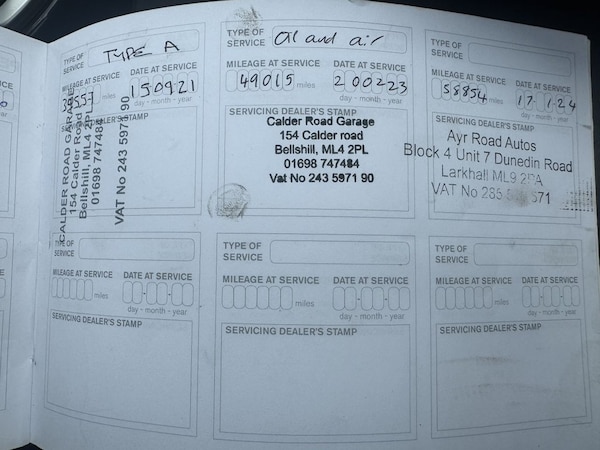 TYPE OF SERVICE TYPE A
MILEAGE AT SERVICE DATE AT SERVICE
miles 150921
day - month - year
SERVICING DEALER'S STAMP
CALDER ROAD GARAGE
154 Calder Road
Bellshill, ML4 2PL
01698 747484
VAT No 243 5971 90
TYPE OF SERVICE Oil and air
MILEAGE AT SERVICE DATE AT SERVICE
49015 miles 200223
day - month - year
SERVICING DEALER'S STAMP
Calder Road Garage
154 Calder road
Bellshill, ML4 2PL
01698 747484
Vat No 243 5971 90
TYPE OF SERVICE
MILEAGE AT SERVICE DATE AT SERVICE
58854 miles 17 1-24
day - month - year
SERVICING DEALER'S STAMP
Ayr Road Autos
Block 4 Unit 7 Dunedin Road
Larkhall ML9
VAT No
TYPE OF SERVICE
MILEAGE AT SERVICE DATE AT SERVICE
miles
day - month - year
SERVICING DEALER'S STAMP
TYPE OF SERVICE
MILEAGE AT SERVICE DATE AT SERVICE
miles
day - month - year
SERVICING DEALER'S STAMP
TYPE OF SERVICE
MILEAGE AT SERVICE DATE AT SERVICE
miles
day - month - year
SERVICING DEALER'S STAMP